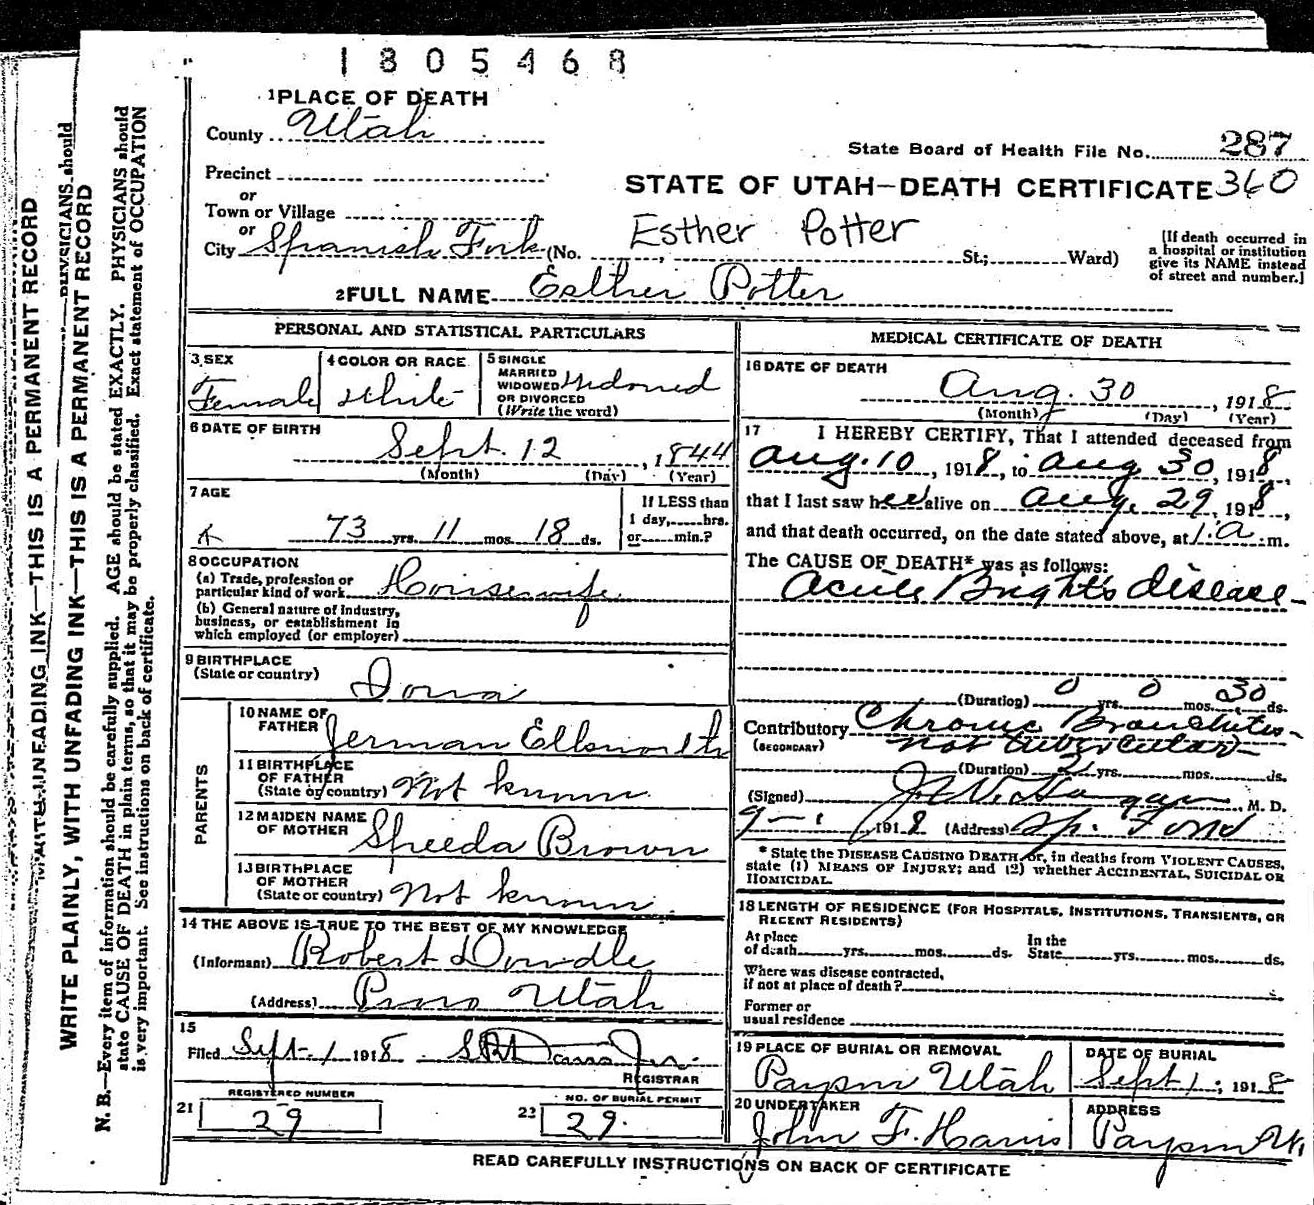 1805468
1 PLACE OF DEATH
County Utah
State Board of Health File No. 287
Precinct
STATE OF UTAH—DEATH CERTIFICATE 360
or
Town or Village
or
City Spanish Fork (No. , St.; Ward)
Esther Potter
[If death occurred in
a hospital or institution
give its NAME instead
of street and number.]
2 FULL NAME Esther Potter
PERSONAL AND STATISTICAL PARTICULARS
3 SEX
Female
4 COLOR OR RACE
White
5 SINGLE
MARRIED
WIDOWED
OR DIVORCED
(Write the word)
Widowed
6 DATE OF BIRTH
Sept. 12, 1844
(Month) (Day) (Year)
7 AGE
73 yrs. 11 mos. 18 ds.
If LESS than
1 day, hrs.
or min.?
8 OCCUPATION
(a) Trade, profession or
particular kind of work Housewife
(b) General nature of industry,
business, or establishment in
which employed (or employer)
9 BIRTHPLACE
(State or country)
Iowa
PARENTS
10 NAME OF
FATHER
Jerman Ellsworth
11 BIRTHPLACE
OF FATHER
(State or country) Not known
12 MAIDEN NAME
OF MOTHER
Speeda Brown
13 BIRTHPLACE
OF MOTHER
(State or country) Not known
14 THE ABOVE IS TRUE TO THE BEST OF MY KNOWLEDGE
(Informant) Robert Dowdle
(Address) Provo Utah
15
Filed Sept. 1 1918
REGISTRAR
21
REGISTERED NUMBER
29
22
NO. OF BURIAL PERMIT
29.
MEDICAL CERTIFICATE OF DEATH
16 DATE OF DEATH
Aug. 30, 1918
(Month) (Day) (Year)
17 I HEREBY CERTIFY, That I attended deceased from
Aug. 10, 1918, to Aug 30, 1918,
that I last saw her alive on Aug. 29, 1918,
and that death occurred, on the date stated above, at 1.a.m.
The CAUSE OF DEATH* was as follows:
Acute Bright's disease
(Duration) 0 yrs. 0 mos. 30 ds.
Contributory Chronic Bronchitis
(SECONDARY) not tubercular
(Duration) 2 yrs. mos. ds.
(Signed) M. D.
9-1 1918 (Address) Sp. Fork
* State the DISEASE CAUSING DEATH, or, in deaths from VIOLENT CAUSES,
state (1) MEANS OF INJURY; and (2) whether ACCIDENTAL, SUICIDAL OR
HOMICIDAL.
18 LENGTH OF RESIDENCE (FOR HOSPITALS, INSTITUTIONS, TRANSIENTS, OR
RECENT RESIDENTS)
At place
of death yrs. mos. ds.
In the
State yrs. mos. ds.
Where was disease contracted,
if not at place of death?
Former or
usual residence
19 PLACE OF BURIAL OR REMOVAL
Payson Utah
DATE OF BURIAL
Sept 1, 1918
20 UNDERTAKER
John F. Harris
ADDRESS
Payson Ut.
READ CAREFULLY INSTRUCTIONS ON BACK OF CERTIFICATE
WRITE PLAINLY, WITH UNFADING INK—THIS IS A PERMANENT RECORD
N. B.—Every item of information should be carefully supplied. AGE should be stated EXACTLY. PHYSICIANS should
state CAUSE OF DEATH in plain terms, so that it may be properly classified. Exact statement of OCCUPATION
is very important. See instructions on back of certificate.
UNFADING INK—THIS IS A PERMANENT RECORD
PHYSICIANS should